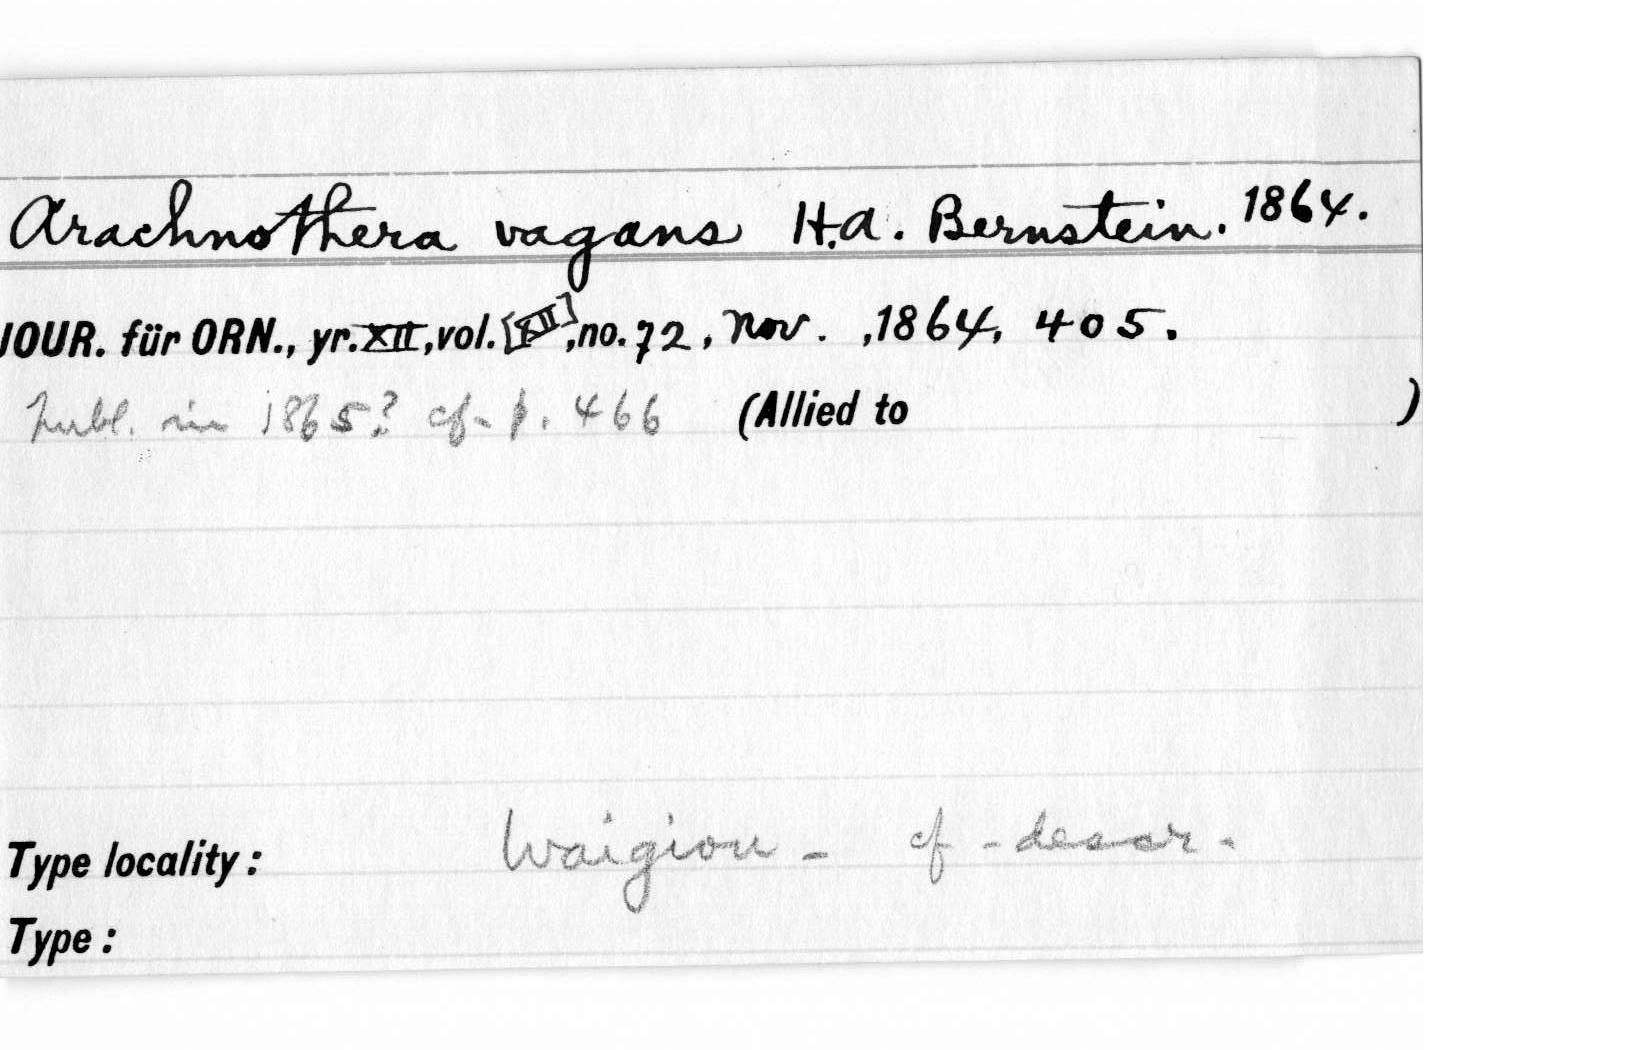 Arachnothera vagans H.A. Bernstein. 1864.
JOUR. für ORN., yr. XII, vol. [XII], no. 72, Nov. , 1864, 405.
Publ. in 1865? cf. p. 466 (Allied to )
Type locality: Waigiou - cf - descr.
Type: